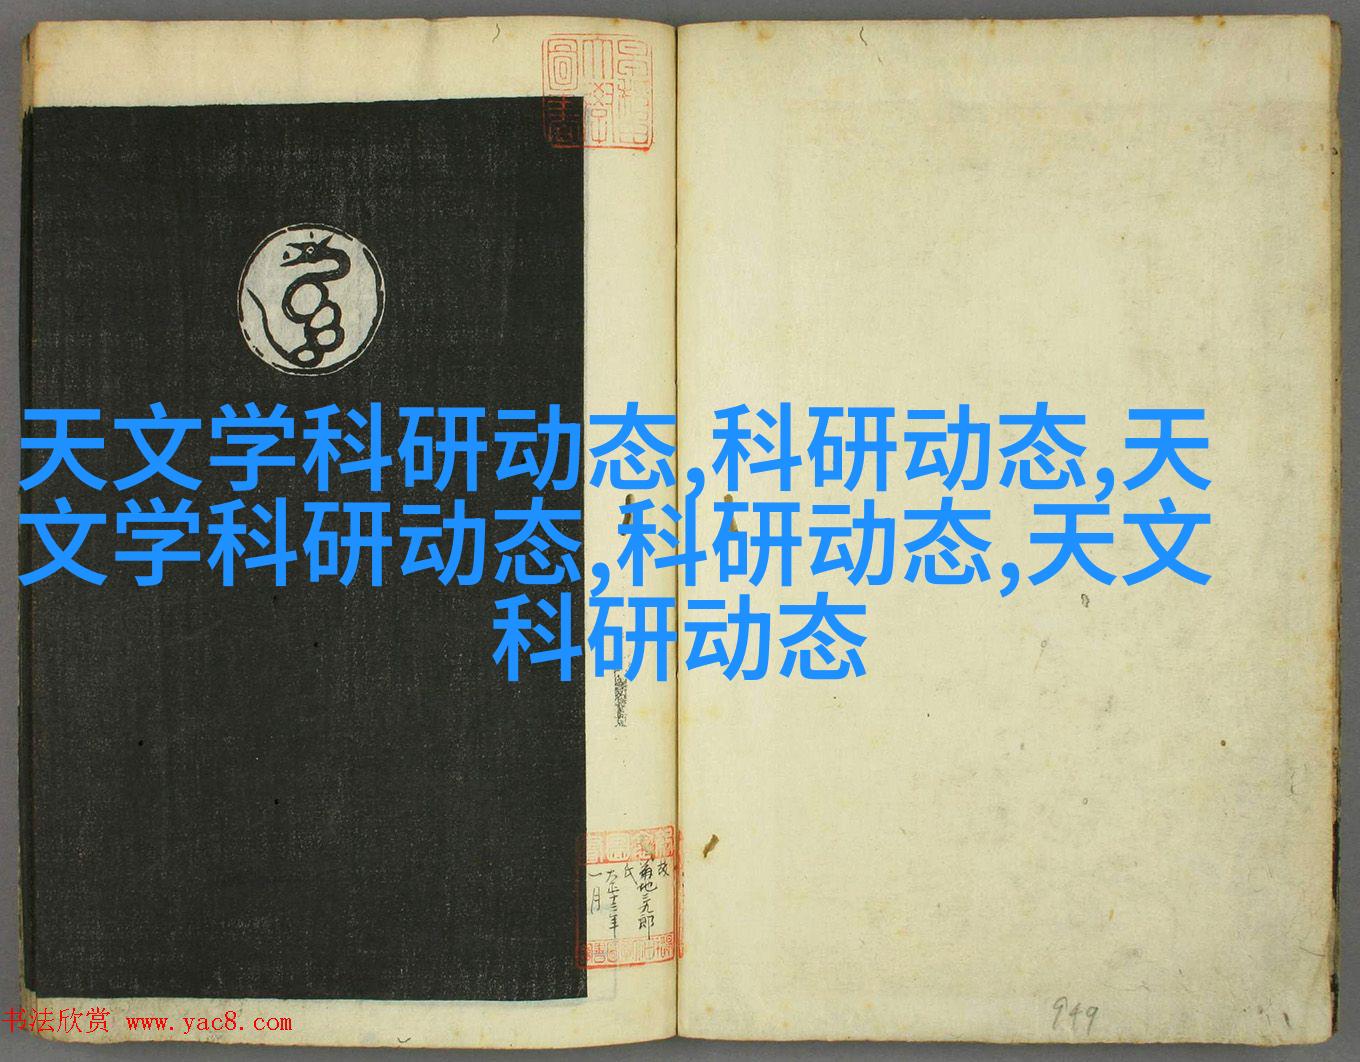 天文学科研动态,科研动态,天
文学科研动态,科研动态,天文
科研动态
故
菊地三九郎
氏
大正十三年
一月
949
书法欣赏 www.yac8.com